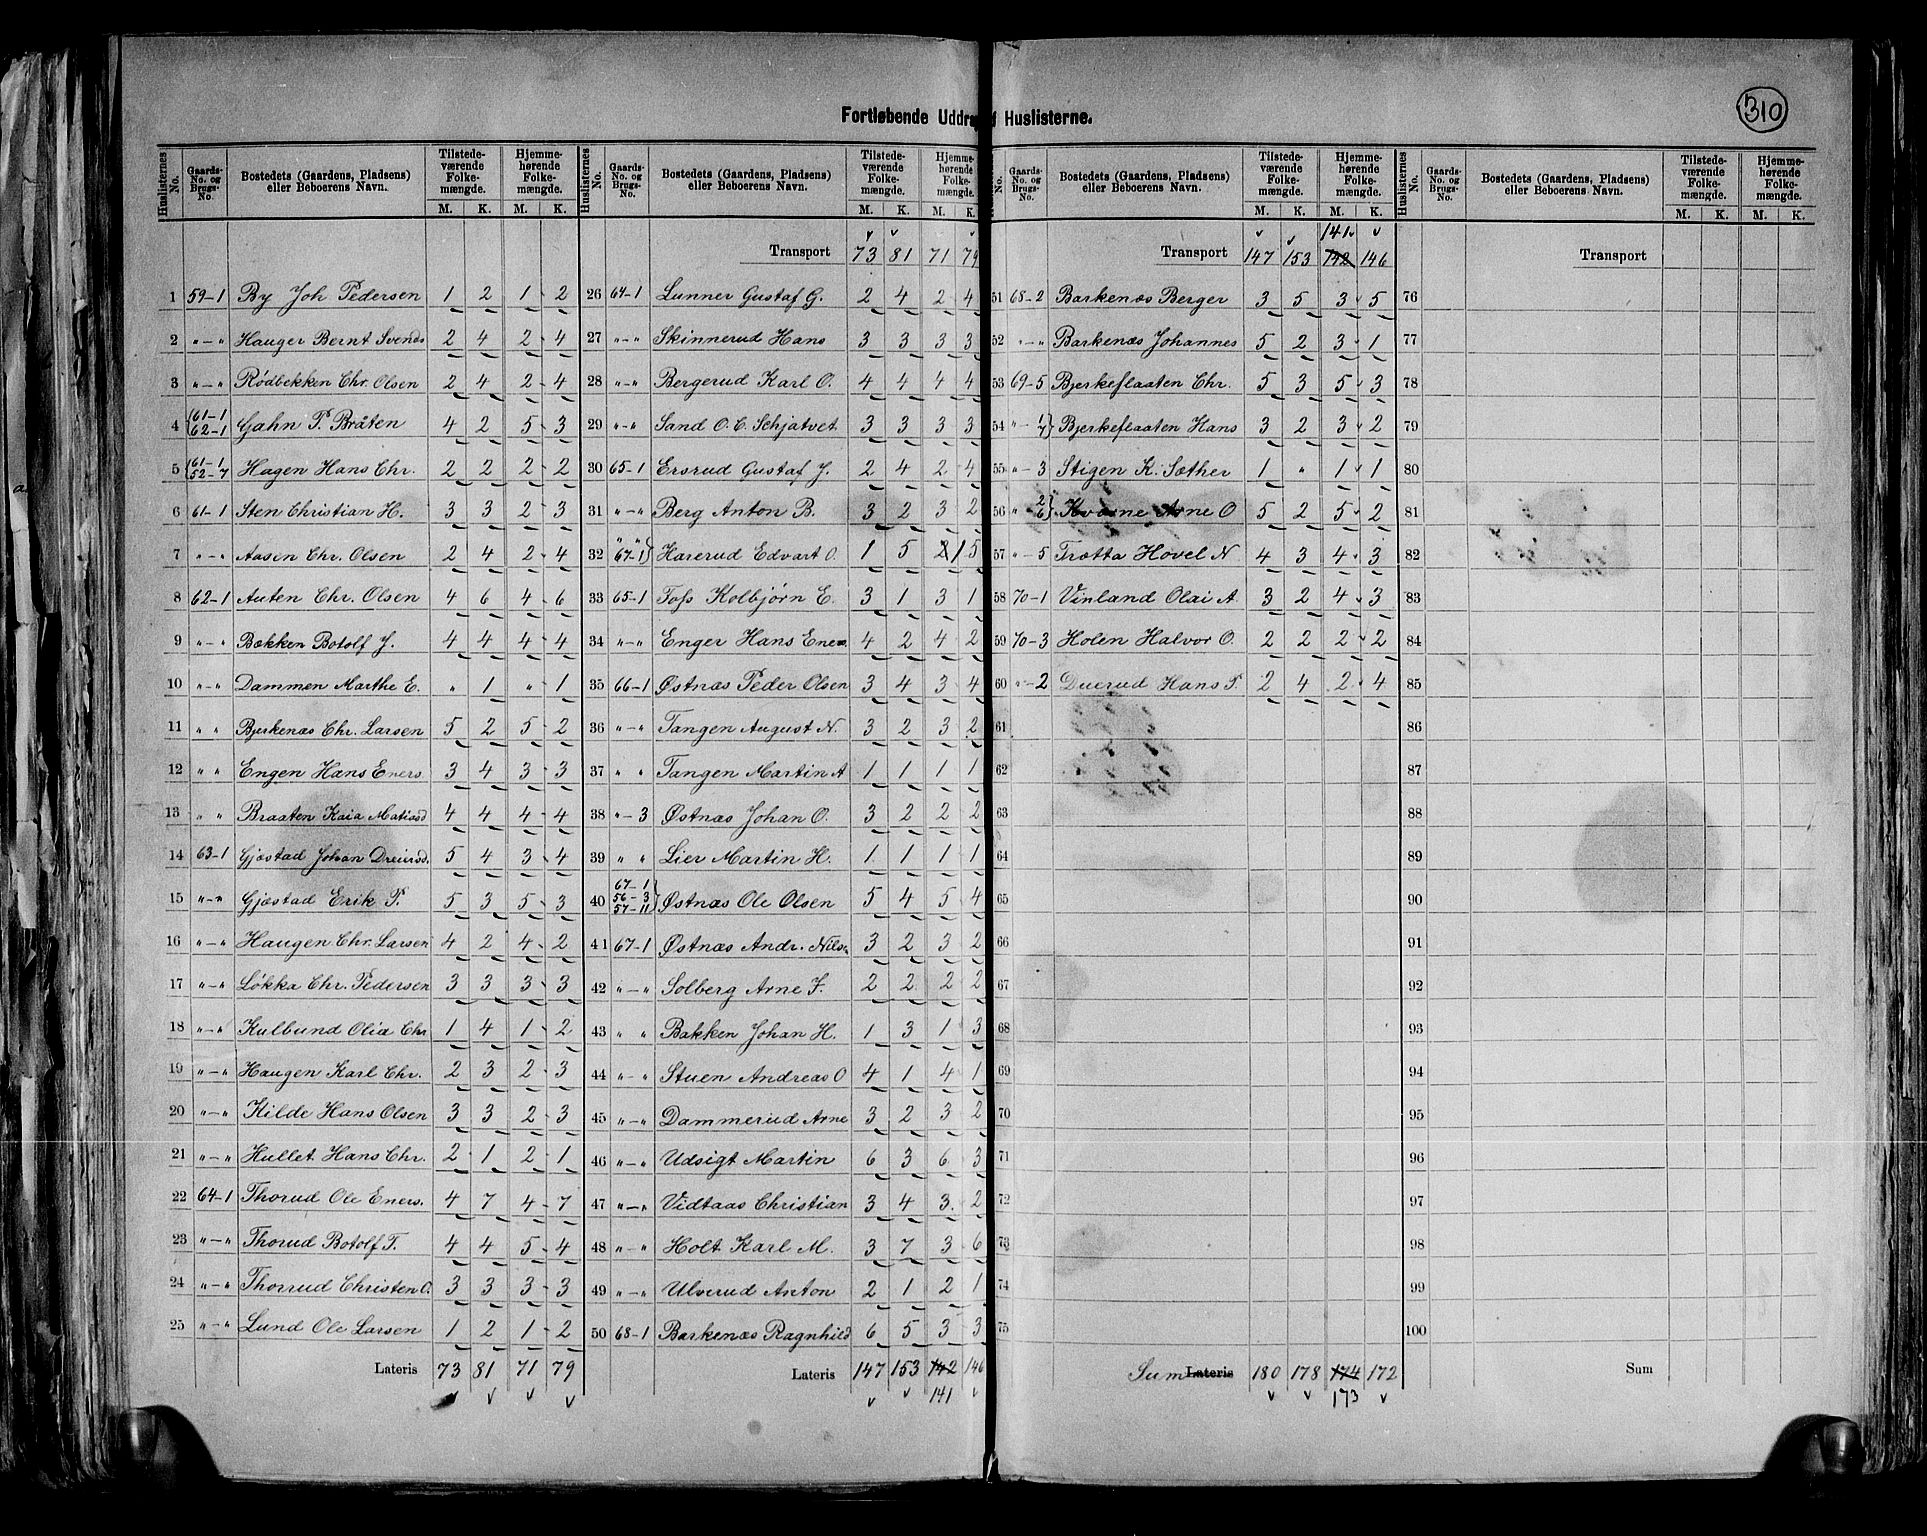 310
Fortløbende Uddra f Huslisterne.
Huslisternes No. | Gaards-No. og Brugs-No. | Bostedets (Gaardens, Pladsens) eller Beboerens Navn. | Tilstedeværende Folkemængde. M. K. | Hjemmehørende Folkemængde. M. K.
1 59-1 By Joh Pedersen 1 2 1 2
2 "-" Hauger Bernt Svends 2 4 2 4
3 "-" Rødbekken Chr. Olsen 2 4 2 4
4 61-1 62-1 Gahn P. Bråten 4 2 5 3
5 61-1 52-7 Hagen Hans Chr. 2 2 2 2
6 61-1 Sten Christian H. 3 3 2 3
7 "-" Aasen Chr. Olsen 2 4 2 4
8 62-1 Auten Chr. Olsen 4 6 4 6
9 "-" Bækken Botolf J. 4 4 4 4
10 "-" Dammen Marthe E. " 1 " 1
11 " " Bjerkenæs Chr. Larsen 5 2 5 2
12 " " Engen Hans Eners 3 4 3 3
13 " " Braaten Kaia Matiasd 4 4 4 4
14 63-1 Gjæstad Johan 5 4 3 4
15 "-" Gjæstad Erik P. 5 3 5 3
16 "-" Haugen Chr. Larsen 4 2 4 2
17 "-" Løkka Chr. Pedersen 3 3 3 3
18 "-" Kulbund Olia Chr 1 4 1 2
19 "-" Haugen Karl Chr. 2 3 2 3
20 "-" Kilde Hans Olsen 3 3 2 3
21 "-" Hullet Hans Chr. 2 1 2 1
22 64-1 Thorud Ole Eners. 4 7 4 7
23 "-" Thorud Botolf T. 4 4 5 4
24 "-" Thorrud Christen O. 3 3 3 3
25 "-" Lund Ole Larsen 1 2 1 2
Lateris 73 81 71 79
Huslisternes No. | Gaards-No. og Brugs-No. | Bostedets (Gaardens, Pladsens) eller Beboerens Navn. | Tilstedeværende Folkemængde. M. K. | Hjemmehørende Folkemængde. M. K.
Transport 73 81 71 79
26 64-1 Lunner Gustaf G. 2 4 2 4
27 "-" Skinnerud Hans 3 3 3 3
28 "-" Bergerud Karl O. 4 4 4 4
29 "-" Sand O. C. Schjatvet 3 3 3 3
30 65-1 Ersrud Gustaf J. 2 4 2 4
31 "-" Berg Anton B. 3 2 3 2
32 " " 67-1 Harerud Edvart O. 1 5 2 1 5
33 65-1 Foss Kolbjørn E. 3 1 3 1
34 "-" Enger Hans 4 2 4 2
35 66-1 Østnæs Peder Olsen 3 4 3 4
36 "-" Tangen August N. 3 2 3 2
37 " " Tangen Martin A 1 1 1 1
38 "-3 Østnæs Johan O. 3 2 2 2
39 " " Lier Martin H. 1 1 1 1
40 67-1 56-3 57-11 Østnæs Ole Olsen 5 4 5 4
41 67-1 Østnæs Andr. Nils 3 2 3 2
42 "-" Solberg Arne F. 2 2 2 2
43 " " Bakken Johan H. 1 3 1 3
44 "-" Stuen Andreas O 4 1 4 1
45 "-" Dammerud Arne 3 2 3 2
46 "-" Udsigt Martin 6 3 6 3
47 "-" Vidtaas Christian 3 4 3 2
48 "-" Holt Karl M. 3 7 3 6
49 "-" Ulverud Anton 2 1 2 1
50 68-1 Barkenæs Ragnhild 6 5 3 3
Lateris 147 153 142 146
141
No. | Gaards-No. og Brugs-No. | Bostedets (Gaardens, Pladsens) eller Beboerens Navn. | Tilstedeværende Folkemængde. M. K. | Hjemmehørende Folkemængde. M. K.
141
Transport 147 153 142 146
51 68-2 Barkenæs Berger 3 5 3 5
52 "-" Barkenæs Johannes 5 2 3 1
53 69-5 Bjerkeflaaten Chr. 5 3 5 3
54 "- 1 7 Bjerkeflaaten Hans 3 2 3 2
55 "-3 Stigen K. Sæther 1 " 1 1
56 " 2 6 Kværne Arne O 5 2 5 2
57 "-5 Trøtta Hovel N 4 3 4 3
58 70-1 Vinland Olai A. 3 2 4 3
59 70-3 Holen Halvor O. 2 2 2 2
60 "-2 Duerud Hans P. 2 4 2 4
61
62
63
64
65
66
67
68
69
70
71
72
73
74
75
Sum Lateris 180 178 174 172
173
Huslisternes No. | Gaards-No. og Brugs-No. | Bostedets (Gaardens, Pladsens) eller Beboerens Navn. | Tilstedeværende Folkemængde. M. K. | Hjemmehørende Folkemængde. M. K.
Transport
76
77
78
79
80
81
82
83
84
85
86
87
88
89
90
91
92
93
94
95
96
97
98
99
100
Sum